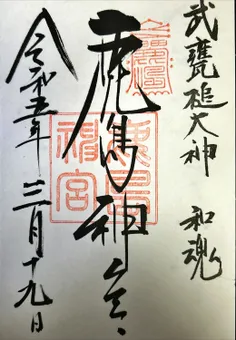 武甕槌大神 和魂
鹿島神宮
令和五年 三月十九日
鹿島神宮